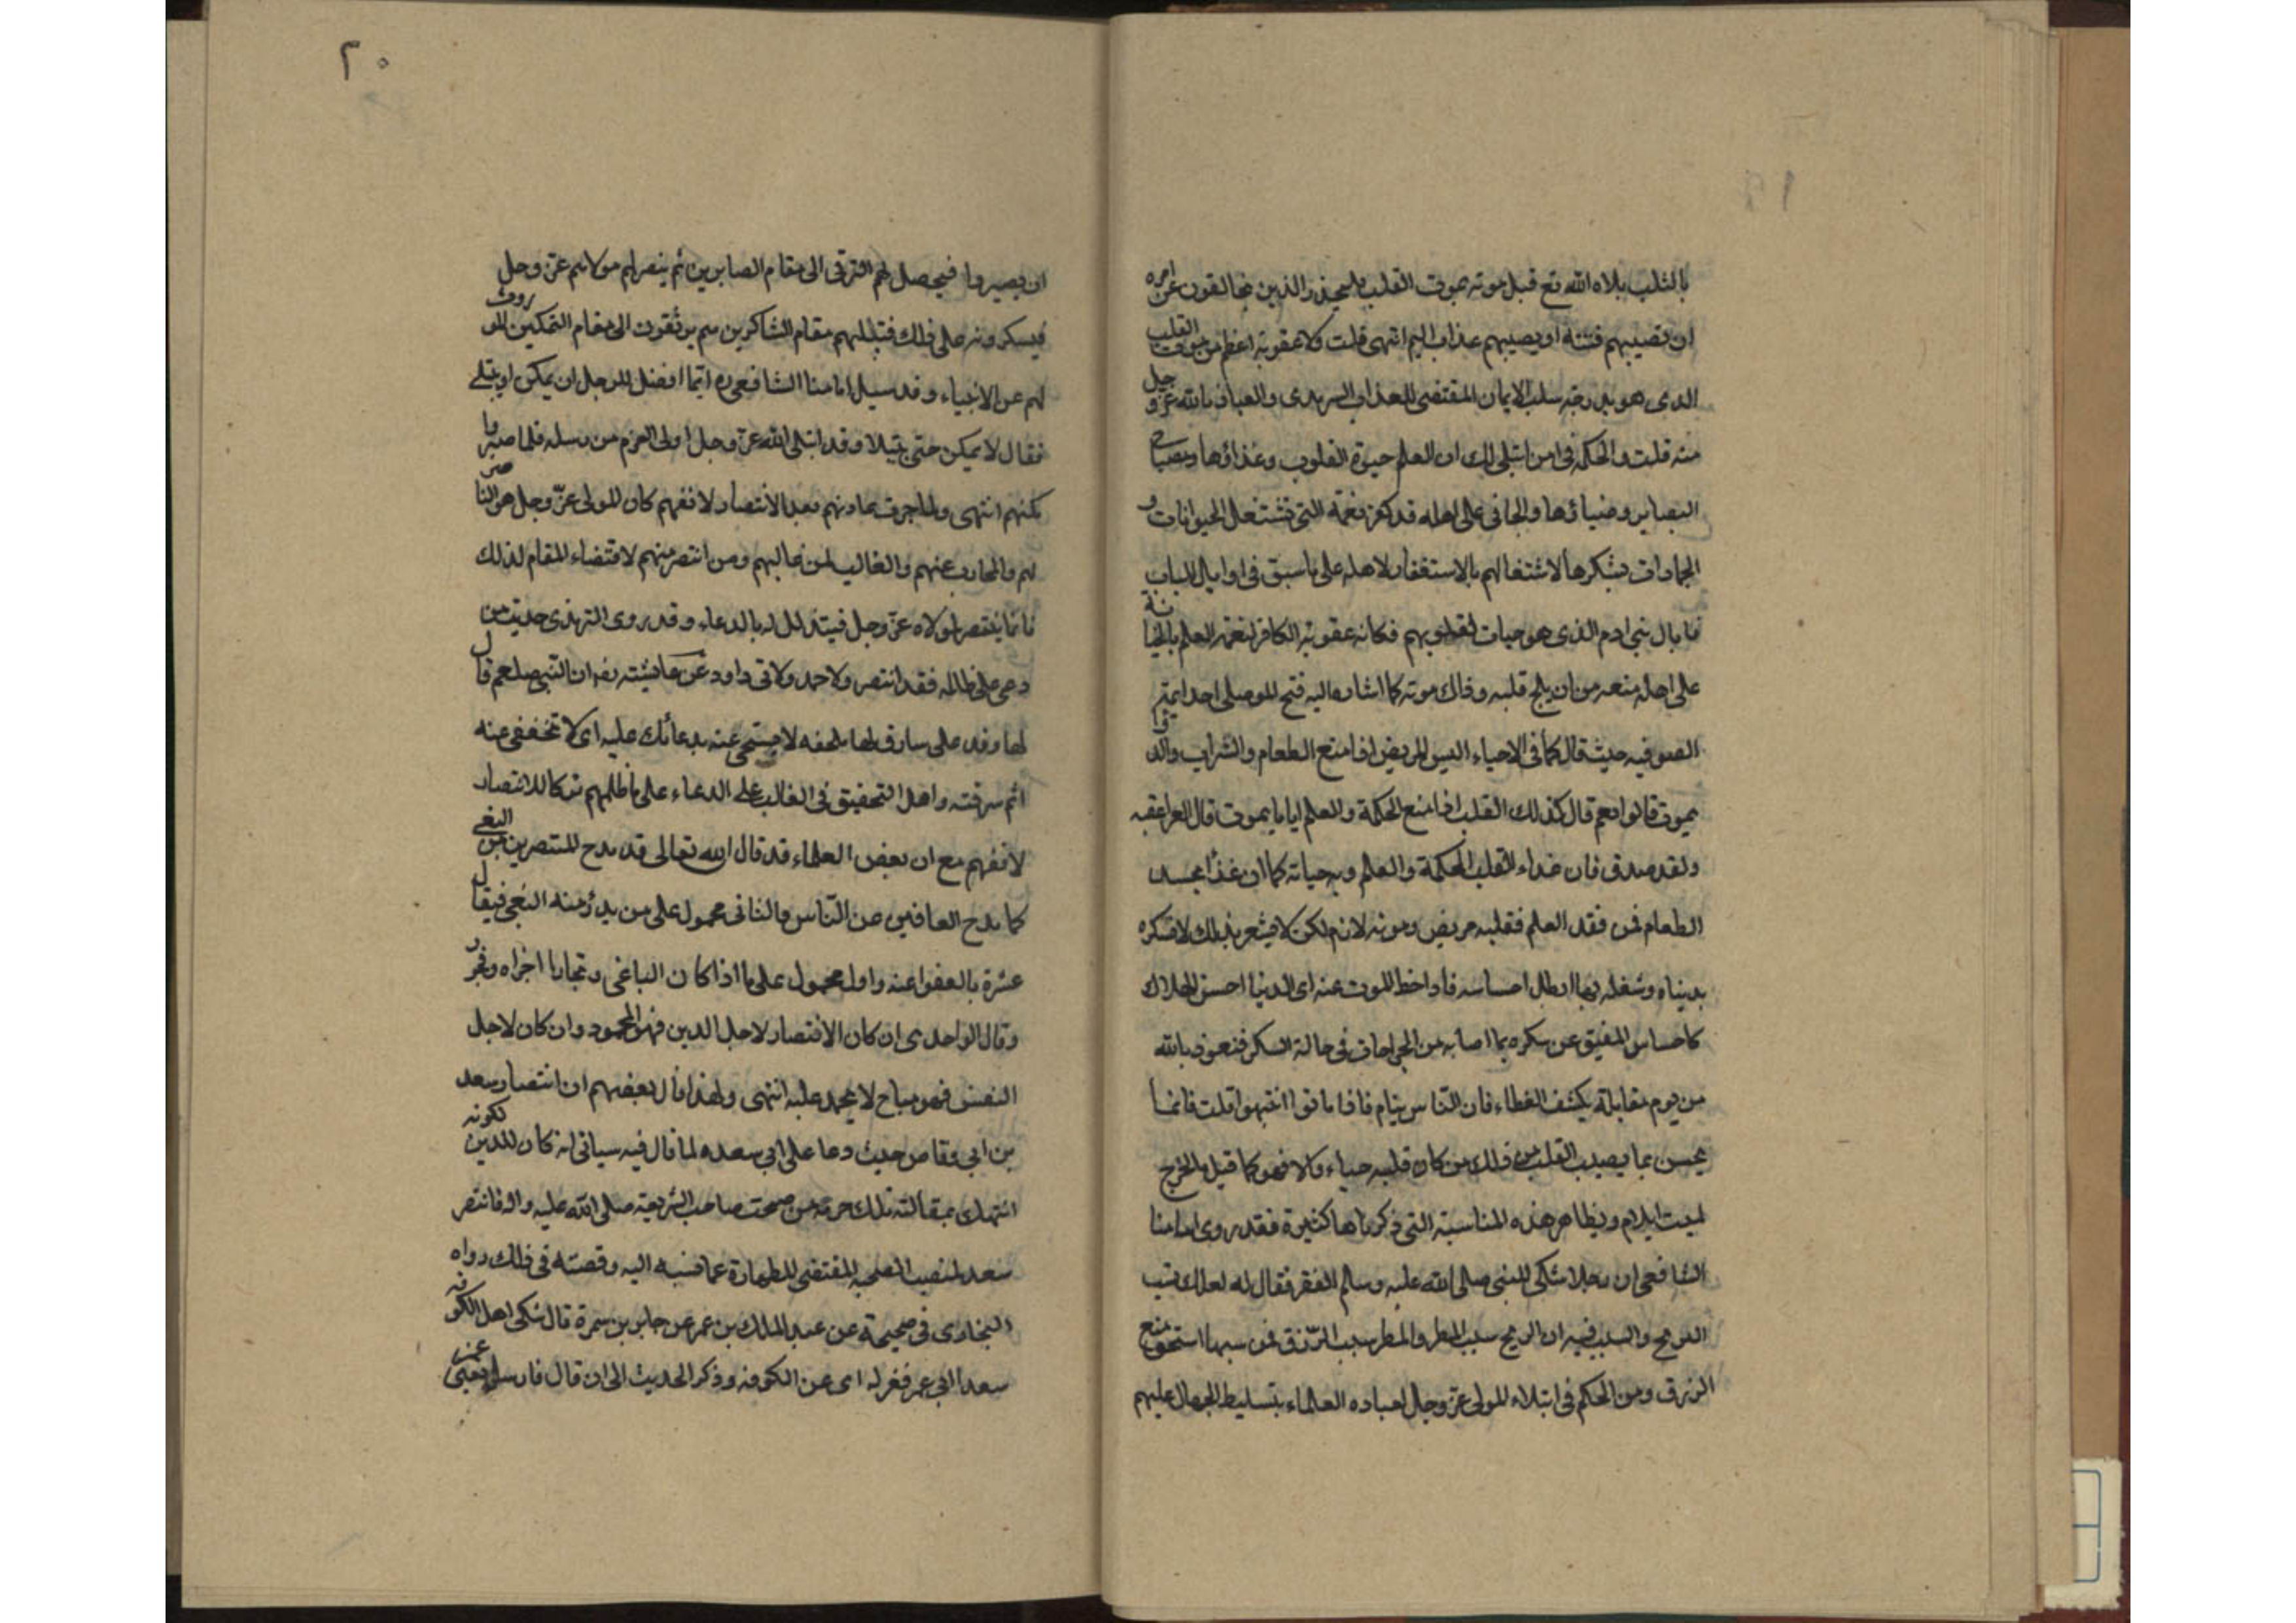 بالثلب بلاه الله تع قبل موته بموت القلب فليحذر الذين يخالفون عن امره
ان تصيبهم فتنة او يصيبهم عذاب اليم انتهى قلت ولا عقوبة اعظم من موت القلب
الذي هو بدرجة سلب الايمان المقتضى للعذاب السرمدى والعياذ بالله عز وجل
منه قلت والحكمة في امن ابتلى لك ان العلم حيوة القلوب وغذاؤها ومصباح
البصاير وضياؤها والجانى على اهله قد كفر نعمة التي تشتغل الحيوانات و
الجمادات بشكرها لاشتغالهم بالاستغفار لاهله على ما سبق في اوايل الباب
فما بال بني ادم الذي هو حيات لقلوبهم فكانه عقوبة الكافر لنعمة العلم بالخيانة
على اهله منعه من ان يلج قلبه وذالك موته كما اشار اليه فتح الموصلى احد ايمة
الصوفيه حيث قال كما في الاحياء اليس المريض اذا منع الطعام والشراب والدوا
يموت قالوا نعم قال كذلك القلب اذا منع الحكمة والعلم اياما يموت قال العراقيه
ولقد صدق فان غداء القلب الحكمة والعلم وبه حياته كما ان غذا الجسد
الطعام فمن فقد العلم فقلبه مريض وموته لازم لكن لا يشعر بذلك لافكره
بدنياه وشغله بها ابطل احساسه فاذا حط الموت عنه اى الدنيا احسن الهلاك
كاحساس المفيق عن سكره بما اصابه من الجراحات في حالة السكر فنعوذ بالله
من يوم مقابلة يكشف الغطاء فان الناس نيام فاذا ماتوا انتبهوا قلت فانما
يحسن بما يصيب القلب من ذلك من كان قلبه حياء والا فهو كما قيل ما لجرح
لميت ايلام ونظاهر هذه المناسبة التى ذكرناها كثيرة فقد روى امامنا
الشافعى ان رجلا شكى للنبى صلى الله عليه وسلم الفقر فقال له لعلك تسب
الريح والسبب فيه ان الريح سبب المطر والمطر سبب الرزق فمن سبها استحق منع
الرزق ومن الحكم في ابتلاء المولى عز وجل لعباده العلماء بتسليط الجهال عليهم
٢٠
ان يصيروا فيحصل لهم الترقى الى مقام الصابرين ثم ينصرلهم مولاهم عز وجل
فيسكرونه على ذلك فتبللهم مقام الشاكرين سم يرتقون الى مقام التمكين الموروث
لهم عن الانبياء وقد سيل امامنا الشافعى ره ايما افضل للرجل ان يمكن او يبتلى
فقال لا يمكن حتى يبتلا وقد ابتلى الله عز وجل اولى العزم من رسله فلما صبروا
مكنهم انتهى ولما جرت عادتهم بعدم الانتصار لانفسهم كان المولى عز وجل هو الناصر
لهم والمحارب عنهم والغالب لمن غالبهم ومن انتصر منهم لاقتضاء المقام لذلك
فانما ينتصر بمولاه عز وجل فيتذلل له بالدعاء وقد روى الترمذى حديث من
دعى على ظالمه فقد انتصر ولاحمد ولابى داود عن عايشته رضه ان النبى صلعم قال
لها وقد على سارق لها ملحفه لا تسبخى عنه بدعائك عليه اى لا تخففى عنه
اثم سرقته واهل التحقيق فى الغالب على الدعاء على ما ظلمهم تركا للانتصار
لانفهم مع ان بعض العلماء قد قال الله تعالى قد مدح المنتصرين من البغى
كما مدح العافين عن الناس والثانى محمول على من يدؤ منه البغى فيقال
عثرة بالعفوا عنه واوله محمول على ما اذا كان الباغى وتجارا اجراه وفجر
وقال الواحدى ان كان الانتصار لاجل الدين فهو المحمود وان كان لاجل
النفس فهو مباح لا يحمد عليه انتهى ولهذا قال بعضهم ان انتصار سعد
بن ابى وقاص حيث دعا على ابى سعده لما قال فيه سياتى انه كان للدين لكونه
انتهك بمقالته تلك حرمة من صحب صاحب الشريعة صلى الله عليه واله فانتصر
سعد لمنصب الصحبه المقتضى للطهارة عما نسبه اليه وقصته فى ذلك رواه
البخارى فى صحيحة عن عبد الملك بن عمر عن جابر بن سمرة قال شكى اهل الكوفه
سعدا الى عمر فعزله اى عن الكوفه وذكر الحديث الى ان قال فارسل يعنى عمر